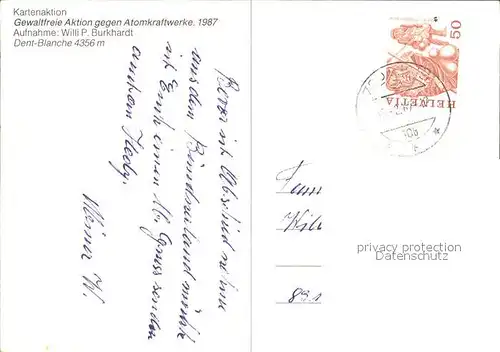 Kartenaktion
Gewaltfreie Aktion gegen Atomkraftwerke. 1987
Aufnahme: Willi P. Burkhardt
Dent-Blanche 4356 m
Bevor ich Abschied nehme
aus dem Bündnerland möchte
ich Euch einen lb. Gruss senden
Werner W.
50
HELVETIA
Fam
privacy protection
Datenschutz